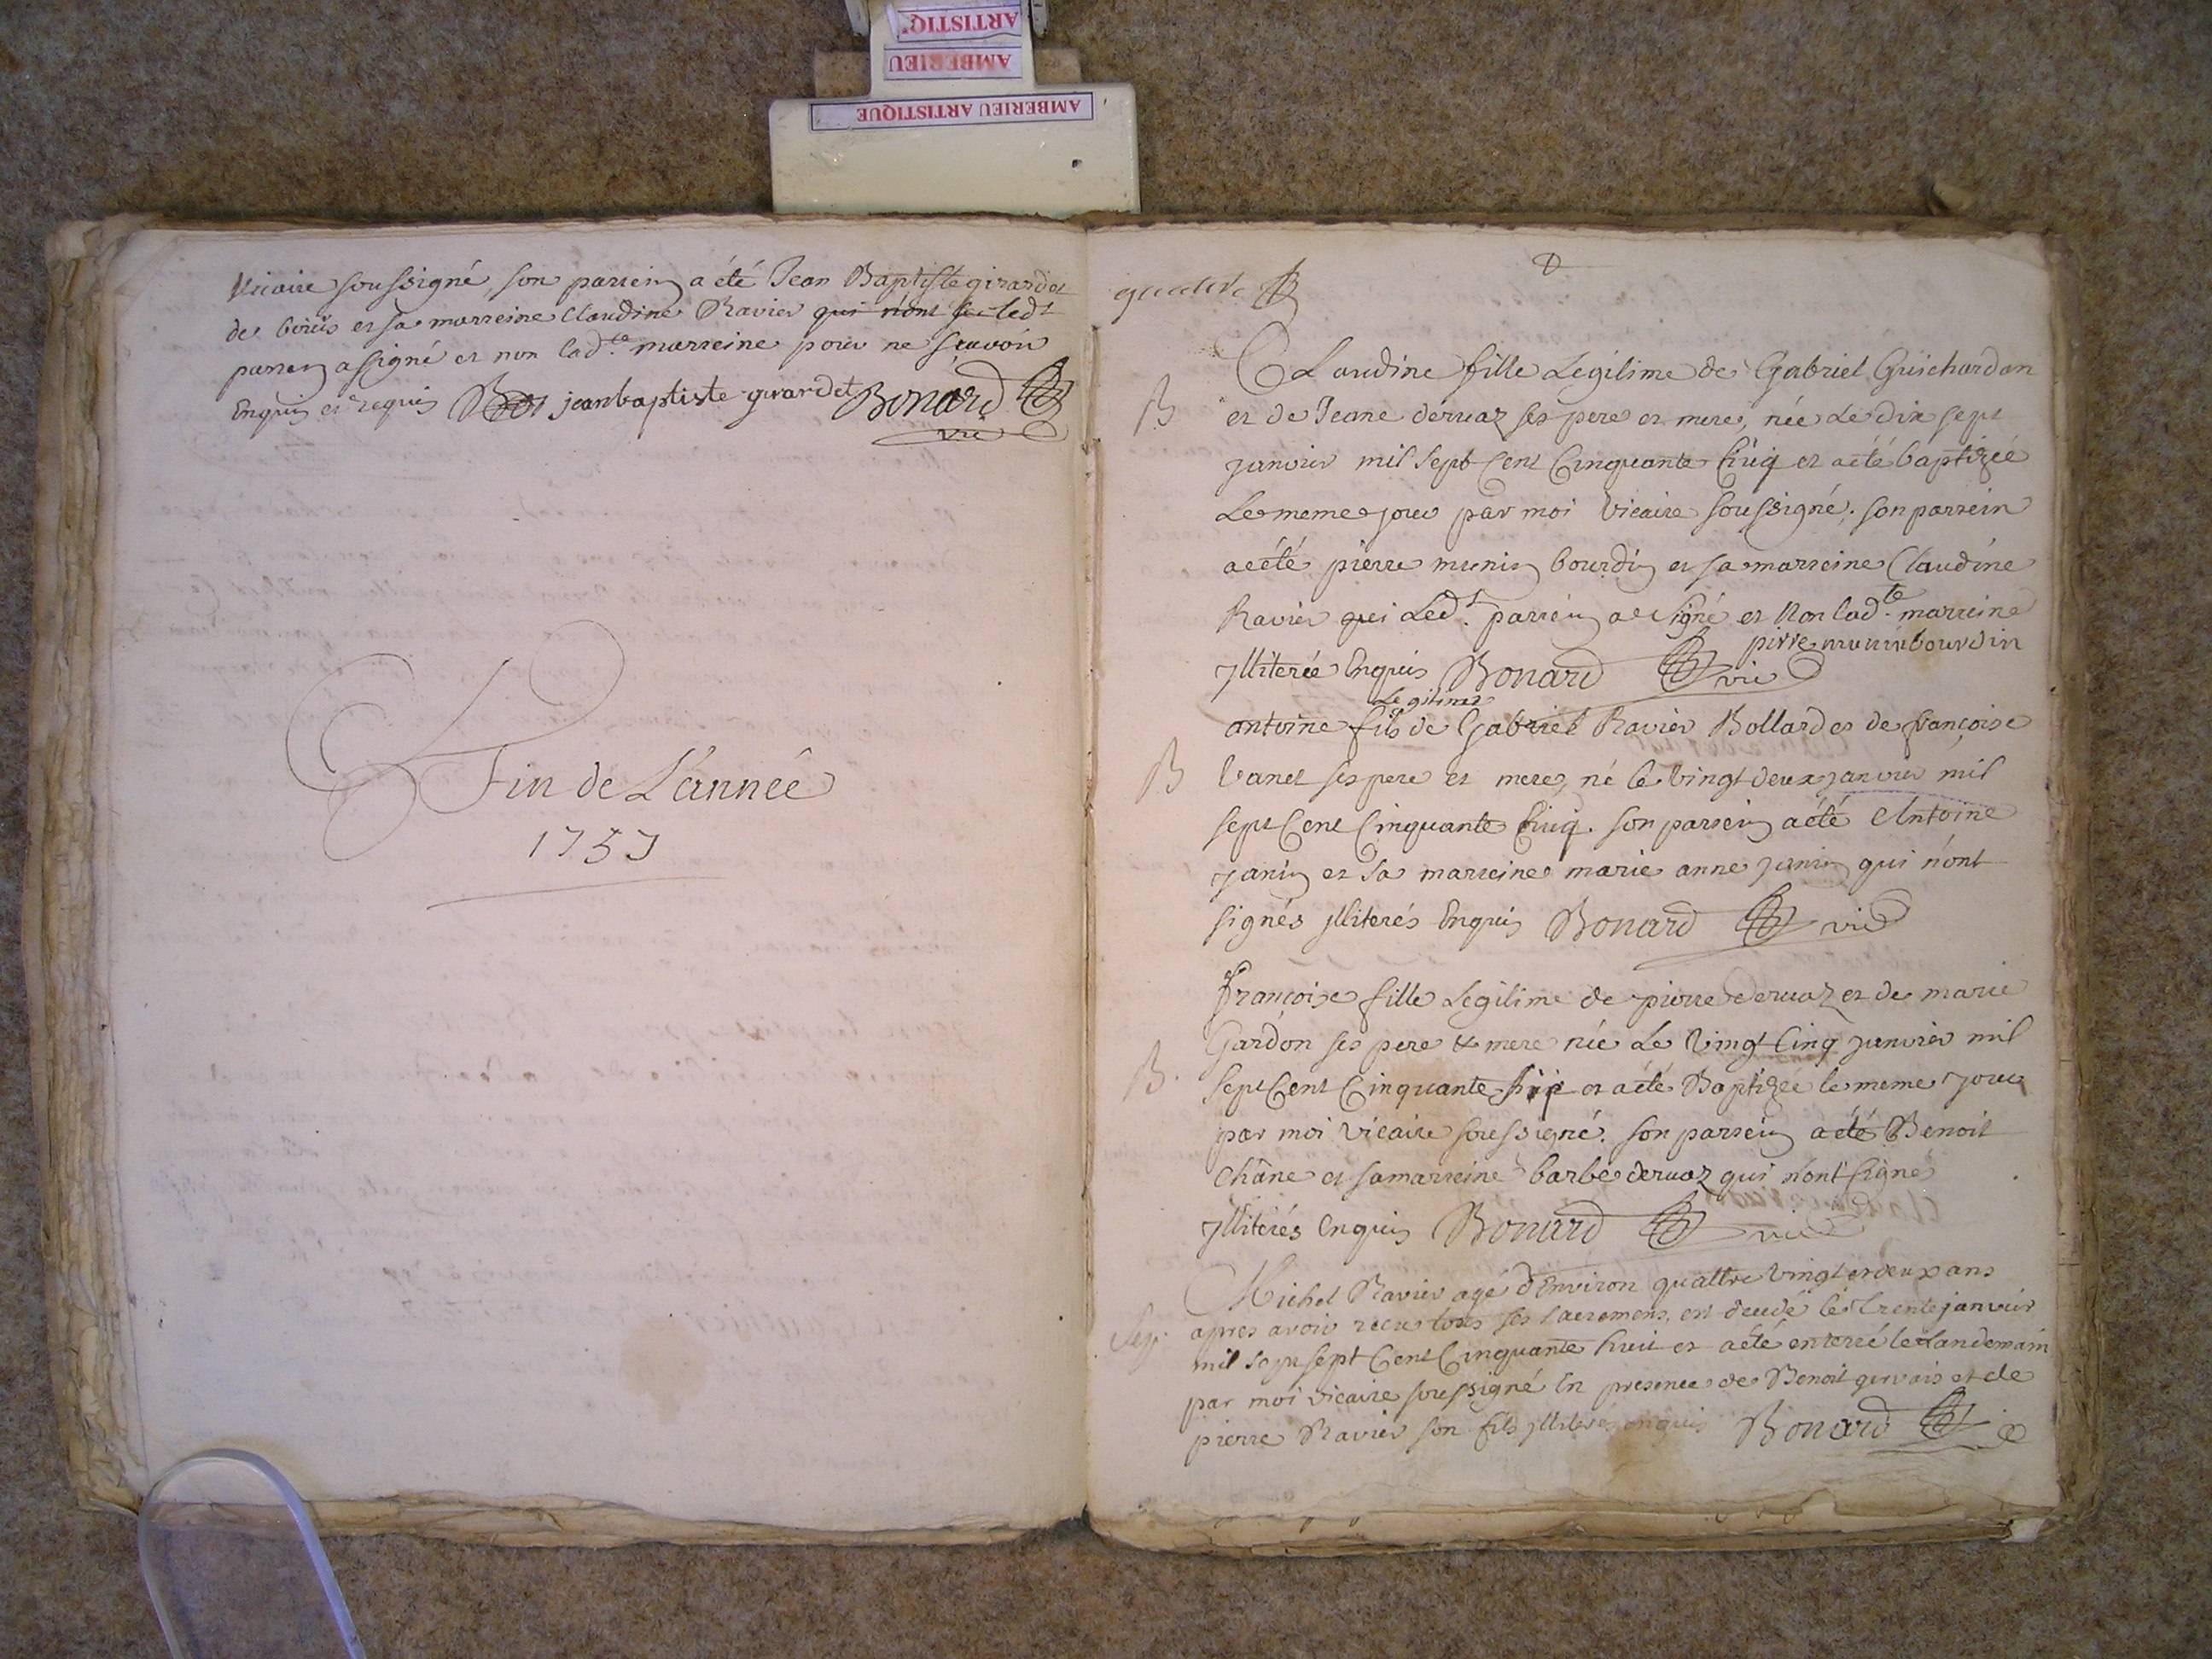 ARTISTIQ'
AMBERIEU
AMBERIEU ARTISTIQUE
Vicaire soussigné, son parrein a été Jean Baptiste girardet
de et sa marreine Claudine Ravier qui n'ont led.t
parrein a signé et non lad.te marreine pour ne sçavoir
Enquis et requis jean baptiste girardet Bonard
vic
Fin de L'année
1757
Claudine fille Legitime de Gabriel Guichardon
B et de Jeane dervaz ses pere et mere, née Le dix sept
janvier mil sept Cent Cinquante et a été baptizée
Le meme jour par moi Vicaire soussigné. son parrein
a été pierre munin bourdin et sa marreine Claudine
Ravier qui Led.t parrein a signé et Non lad.te marreine
pirre munin bourdin
jlliterée Enquis Bonard vic
Legitime
antoine fils de Gabriel Ravier Bollard et de françoise
B Vanet ses pere et mere, né le Vingt deux janvier mil
sept Cent Cinquante . son parrein a été Antoine
janin et sa marreine marie anne janin qui n'ont
signés jlliterés Enquis Bonard vic
françoise fille Legitime de pierre dervaz et de marie
Gardon ses pere & mere née Le Vingt Cinq janvier mil
B. sept Cent Cinquante et a été Baptizée le meme jour
par moi Vicaire soussigné. son parrein a été Benoit
Chane et sa marreine barbe dervaz qui n'ont signé
jlliterés Enquis Bonard vic
Michel Ravier agé d'Environ quattre Vingt et deux ans
Sep. apres avoir recu tous ses sacremens, est decedé le trente janvier
mil sept sept Cent Cinquante huit et a été enterré le Landemain
par moi vicaire soussigné En presence de Benoit gervais et de
pierre Ravier son fils jlliterés enquis Bonard